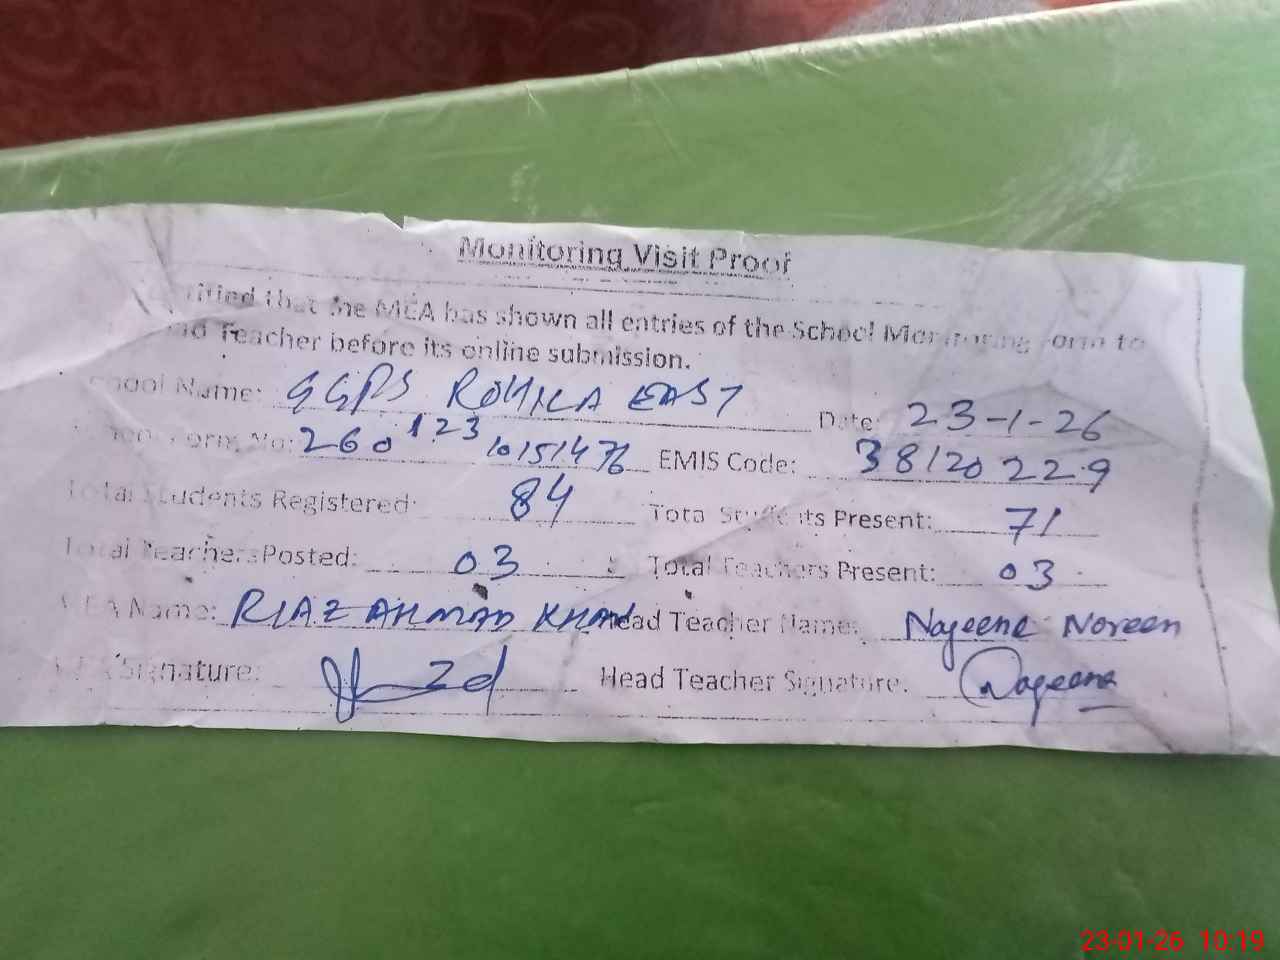 Monitoring Visit Proof
that the MEA has shown all entries of the School Monitoring Form to
Teacher before its online submission.
School Name: GGPS ROHILA EAST Date: 23-1-26
No: 260123 10151476 EMIS Code: 38120229
Total Students Registered: 84 Total Students Present: 71
Total Teachers Posted: 03 Total Teachers Present: 03
MEA Name: RIAZ AHMAD KHAN Head Teacher Name: Nageena Noreen
MEA Signature: Head Teacher Signature: Nageena
23-01-26 10:19